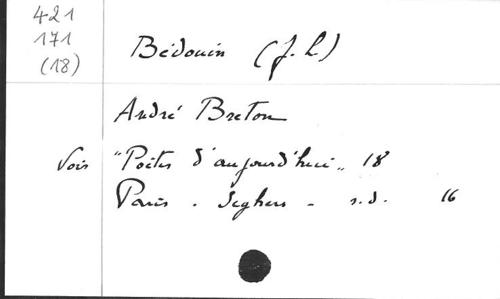 421
171
(18)
Bédouin (J. L)
André Breton
Vois "Poètes d'aujourd'hui" 18
Paris - Seghers - s.d. 16